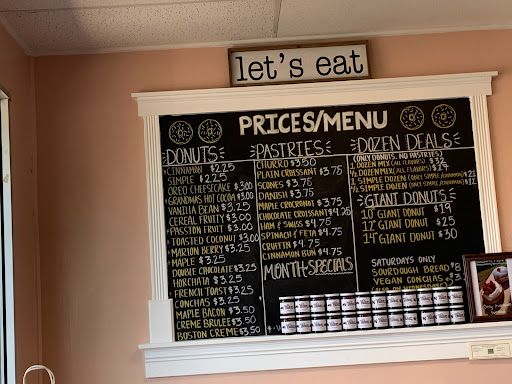 let's eat
PRICES/MENU
DONUTS
CINNAMON $2.25
SIMPLE $2.25
OREO CHEESECAKE $3.00
GRANDMAS HOT COCOA $3.00
VANILLA BEAN $3.25
CEREAL FRUITY $3.00
PASSION FRUIT $3.00
TOASTED COCONUT $3.00
MARION BERRY $3.25
MAPLE $3.25
DOUBLE CHOCOLATE $3.25
HORCHATA $3.25
FRENCH TOAST $3.25
CONCHAS $3.25
MAPLE BACON $3.50
CREME BRULEE $3.50
BOSTON CREME $3.50
PASTRIES
CHURRO $3.50
PLAIN CROISSANT $3.75
SCONES $3.75
DANISH $3.75
MAPLE CRORONUT $3.75
CHOCOLATE CROISSANT $4.25
HAM & SWISS $4.75
SPINACH & FETA $4.75
CRUFFIN $4.75
CINNAMON BUN $4.75
MONTH-SPECIALS
DOZEN DEALS
(ONLY DONUTS, NO PASTRIES)
1 DOZEN MIX (ALL FLAVORS) $32
½ DOZEN MIX (ALL FLAVORS)
1 SIMPLE DOZEN (ONLY SIMPLE/CINNAMON) $21
½ SIMPLE DOZEN (ONLY SIMPLE/CINNAMON)
GIANT DONUTS
10" GIANT DONUT $19
12" GIANT DONUT $25
14" GIANT DONUT $30
SATURDAYS ONLY
SOURDOUGH BREAD $8
VEGAN CONCHAS